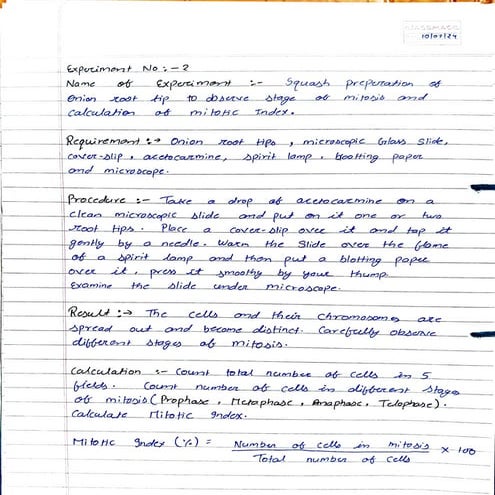 10/07/24
Experiment No :- 2
Name of Experiment :- Squash preperation of
Onion root tip to observe stage of mitosis and
calculation of mitotic Index.
Requirement :-> Onion root tips , microscopic Glass slide,
cover-slip , acetocarmine, spirit lamp , bootting paper
and microscope.
Procedure :- Take a drop of acetocarmine on a
clean microscopic slide and put on it one or two
root tips. Place a cover-slip over it and tap it
gently by a needle. Warm the Slide over the flame
of a spirit lamp and then put a blotting paper
over it , press it smoothy by your thump.
Examine the slide under microscope.
Result :-> The cells and their chromosomes are
spread out and become distinct. Carefully observe
different stages of mitosis.
Calculation :- Count total number of cells in 5
fields. Count number of cells in different stages
of mitosis (Prophase , Metaphase , Anaphase , Telophase).
Calculate Mitotic Index.
Mitotic Index (%) = Number of cells in mitosis × 100
Total number of cells